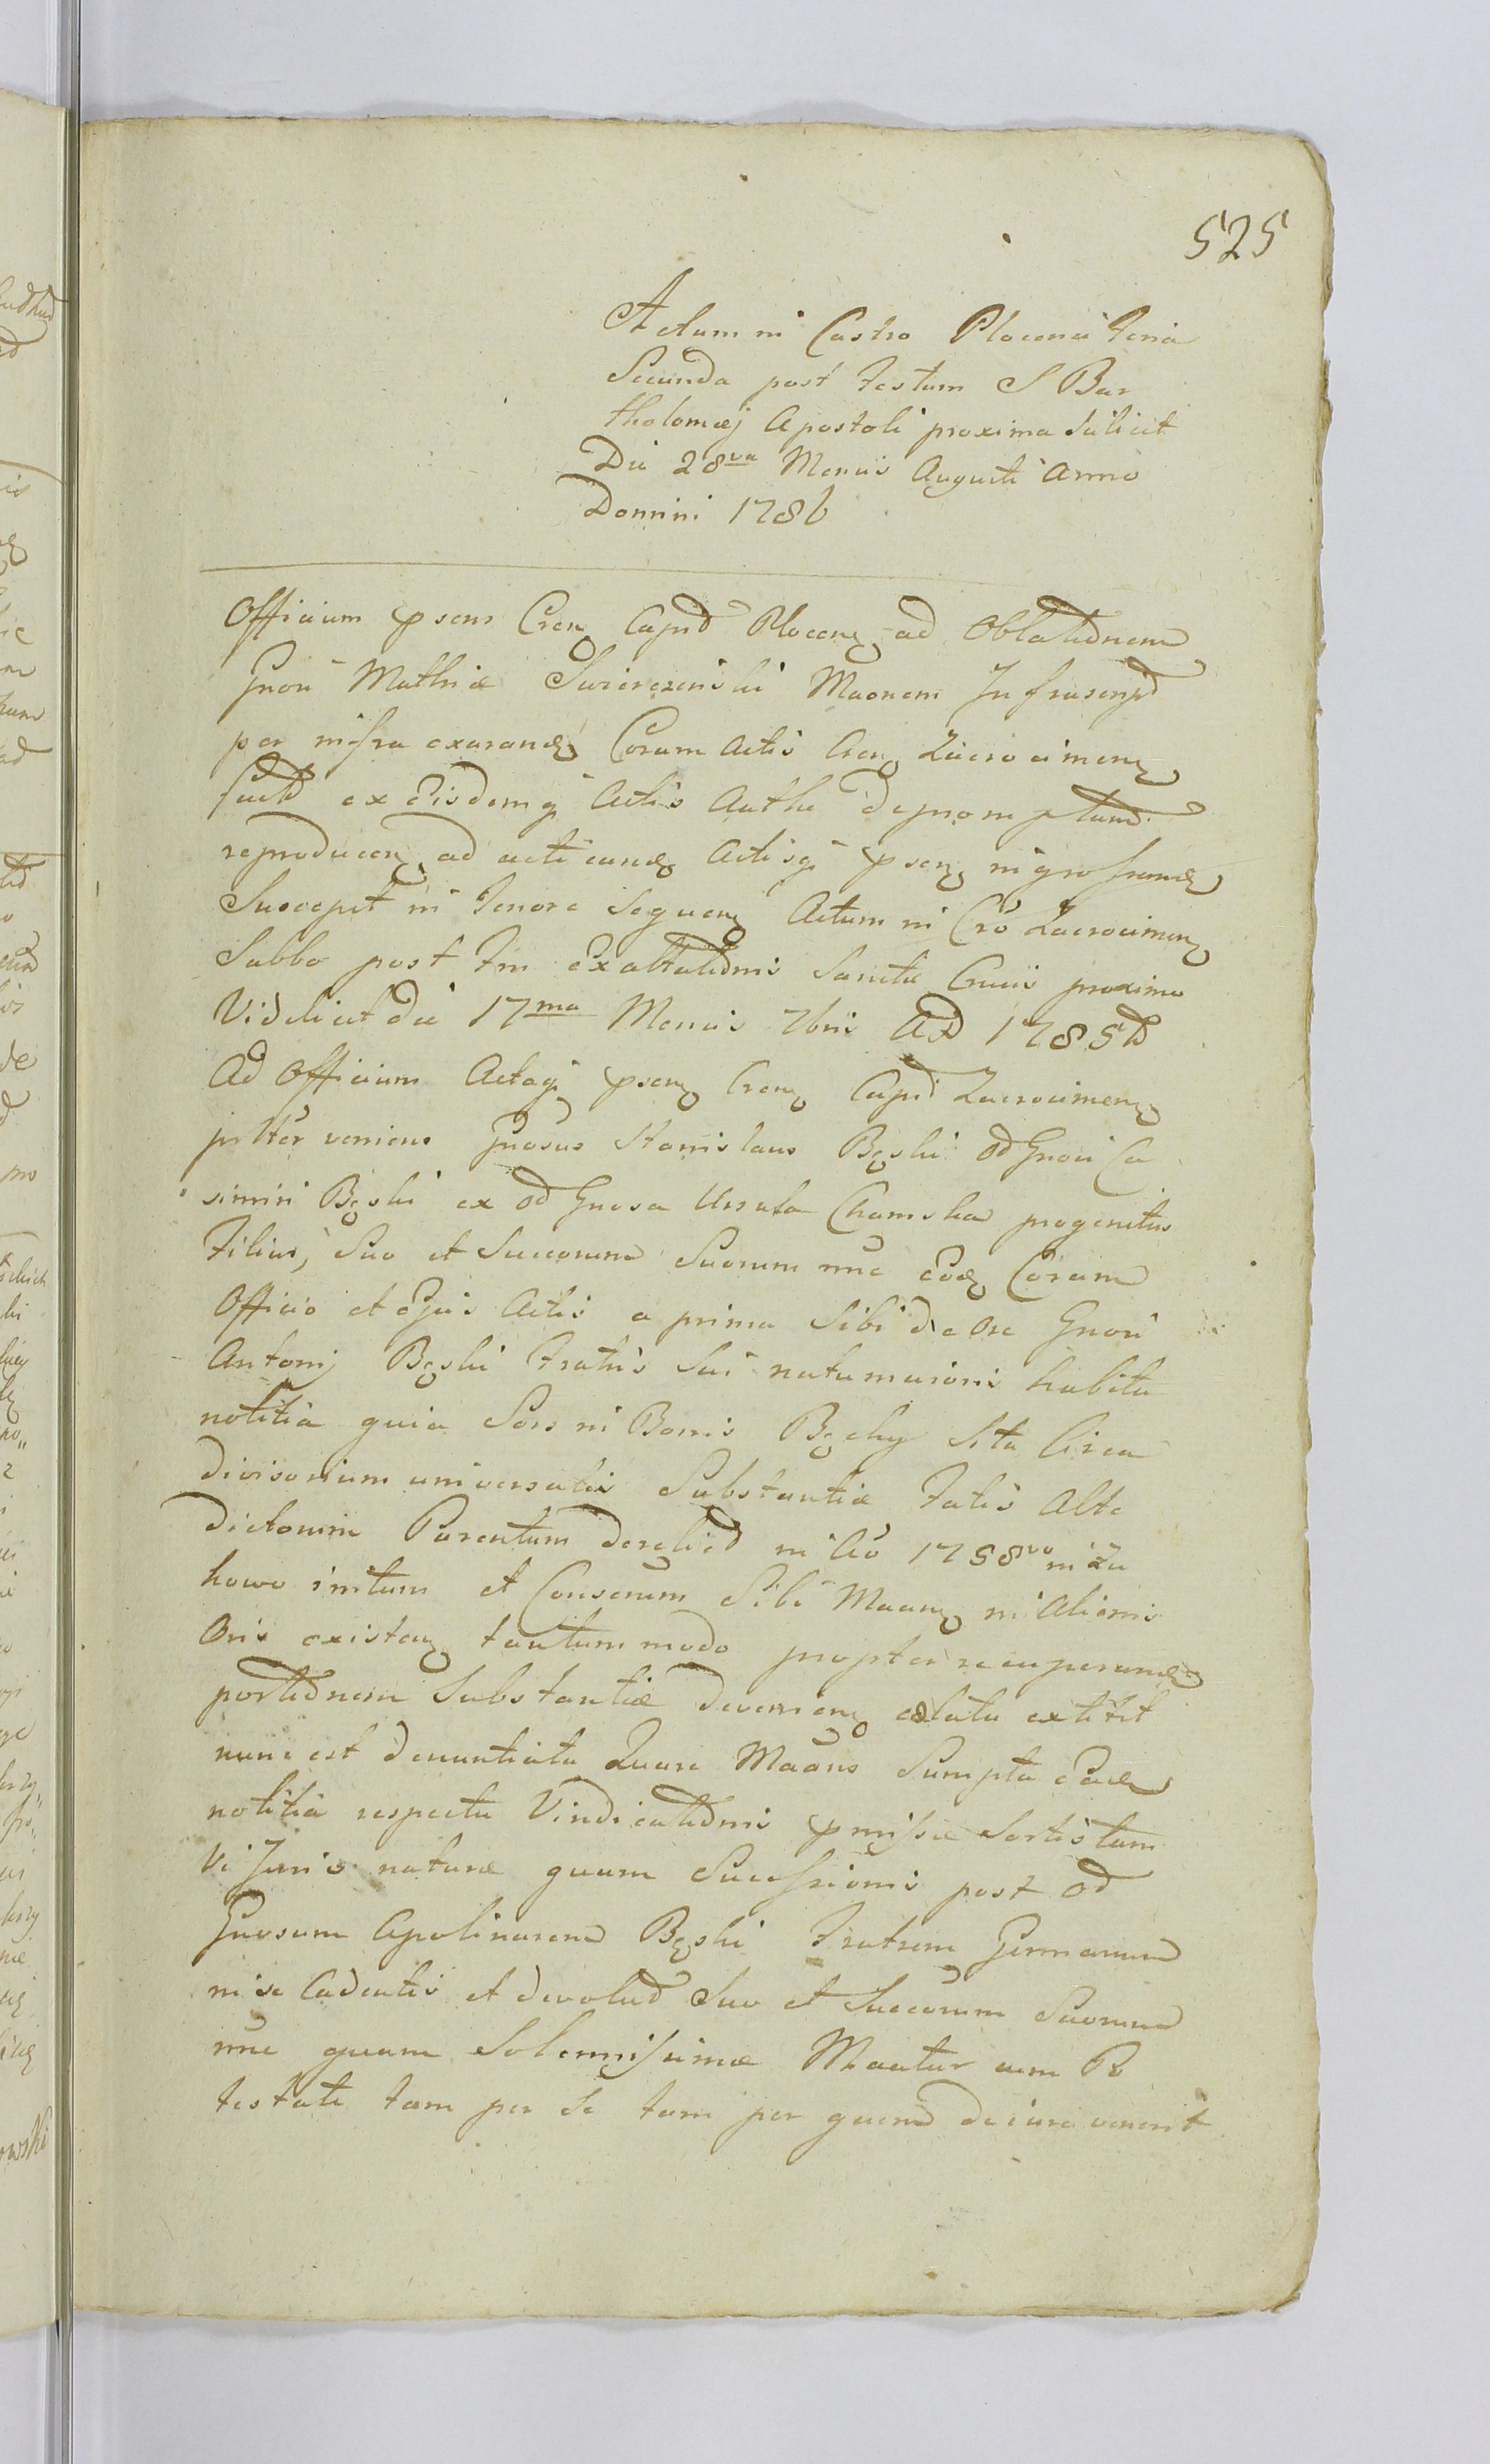 525
Actum in Castro Plocensi Feria
Secunda post Festum S Bar
tholomæj Apostoli proxima Scilicet
Die 28va Mensis Augusti Anno
Domini 1786
Officium psens Cren Capid Plocen ad Oblatednem
Gnon Mathiæ Swierczinski Maonem Infrascripd
per infra exarand Coram Actis Cren Zacrocimen
factd ex Eisdemq Actis Authe depromptam
reproducen ad acticand Actisq psen ingrossand
Suscepit in Tenore Sequen Actum in Cro Zacrocimen
Sabbo post Fm Exaltatednis Sanctæ Crucis proximo
Videlicet die 17ma Mensis 7bris AD 1785to
Ad Officium Actaq psen Cren Capd Zacrocimen
psltér veniens Gnosus Stanislaus Bęski od Gnoii Ca
simiri Bęski ex od Gnosa Ursula Chamska progenitus
Filius, Suo et Succorum Suorum nnc Eod Coram
Officio et Ejus Actis a prima Sibi de Ore Gnoii
Antonij Bęski Fratris Sui natumaioris habita
notitia quia Sors in Bonis Bęchy Sita Circa
divisorium universalis Substantiæ Fatis Alte
dictorum Parentum derelicd in Ao 1758vo in Zu
howo initum et Consensum Sibi Maan in Alienis
Oris existen tantummodo propter recuperand
portednem Substantiæ devenien elata extitit
nunc est denuntiata Quare Maans Sumpta Ead
notitia respectu Vindicatednis pmissæ Sortis tam
Vi Juris naturæ quam Successionis post od
Gnosum Apolinarem Bęski Fratrem Germanum
in se Cadentis et devolud Suo et Succorum Suorum
nnc quam Solemnissime Maatur cum P
testate tam per se tam per quem de iure venerit